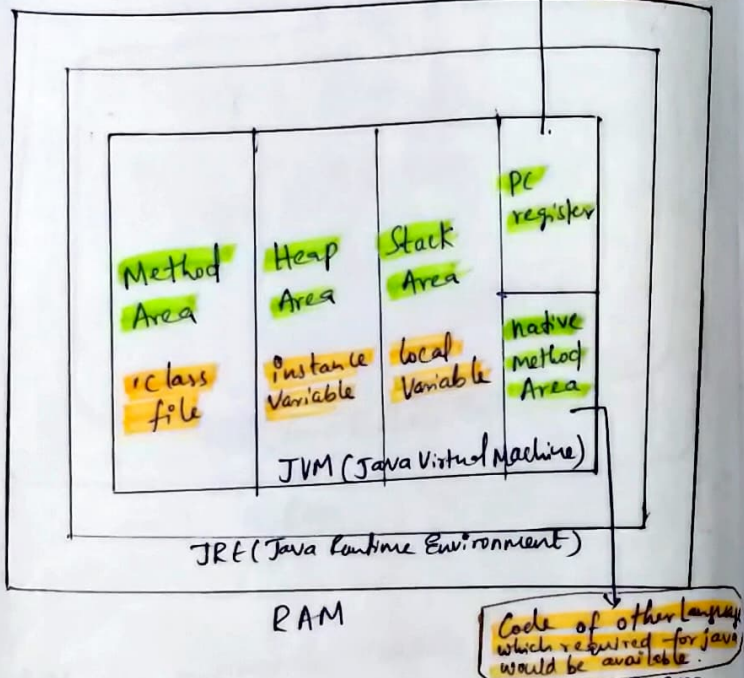 Method
Area
.class
file
Heap
Area
instance
Variable
Stack
Area
local
Variable
PC
register
native
method
Area
JVM (Java Virtual Machine)
JRE (Java Runtime Environment)
RAM
Code of other Language
which required for java
would be available.